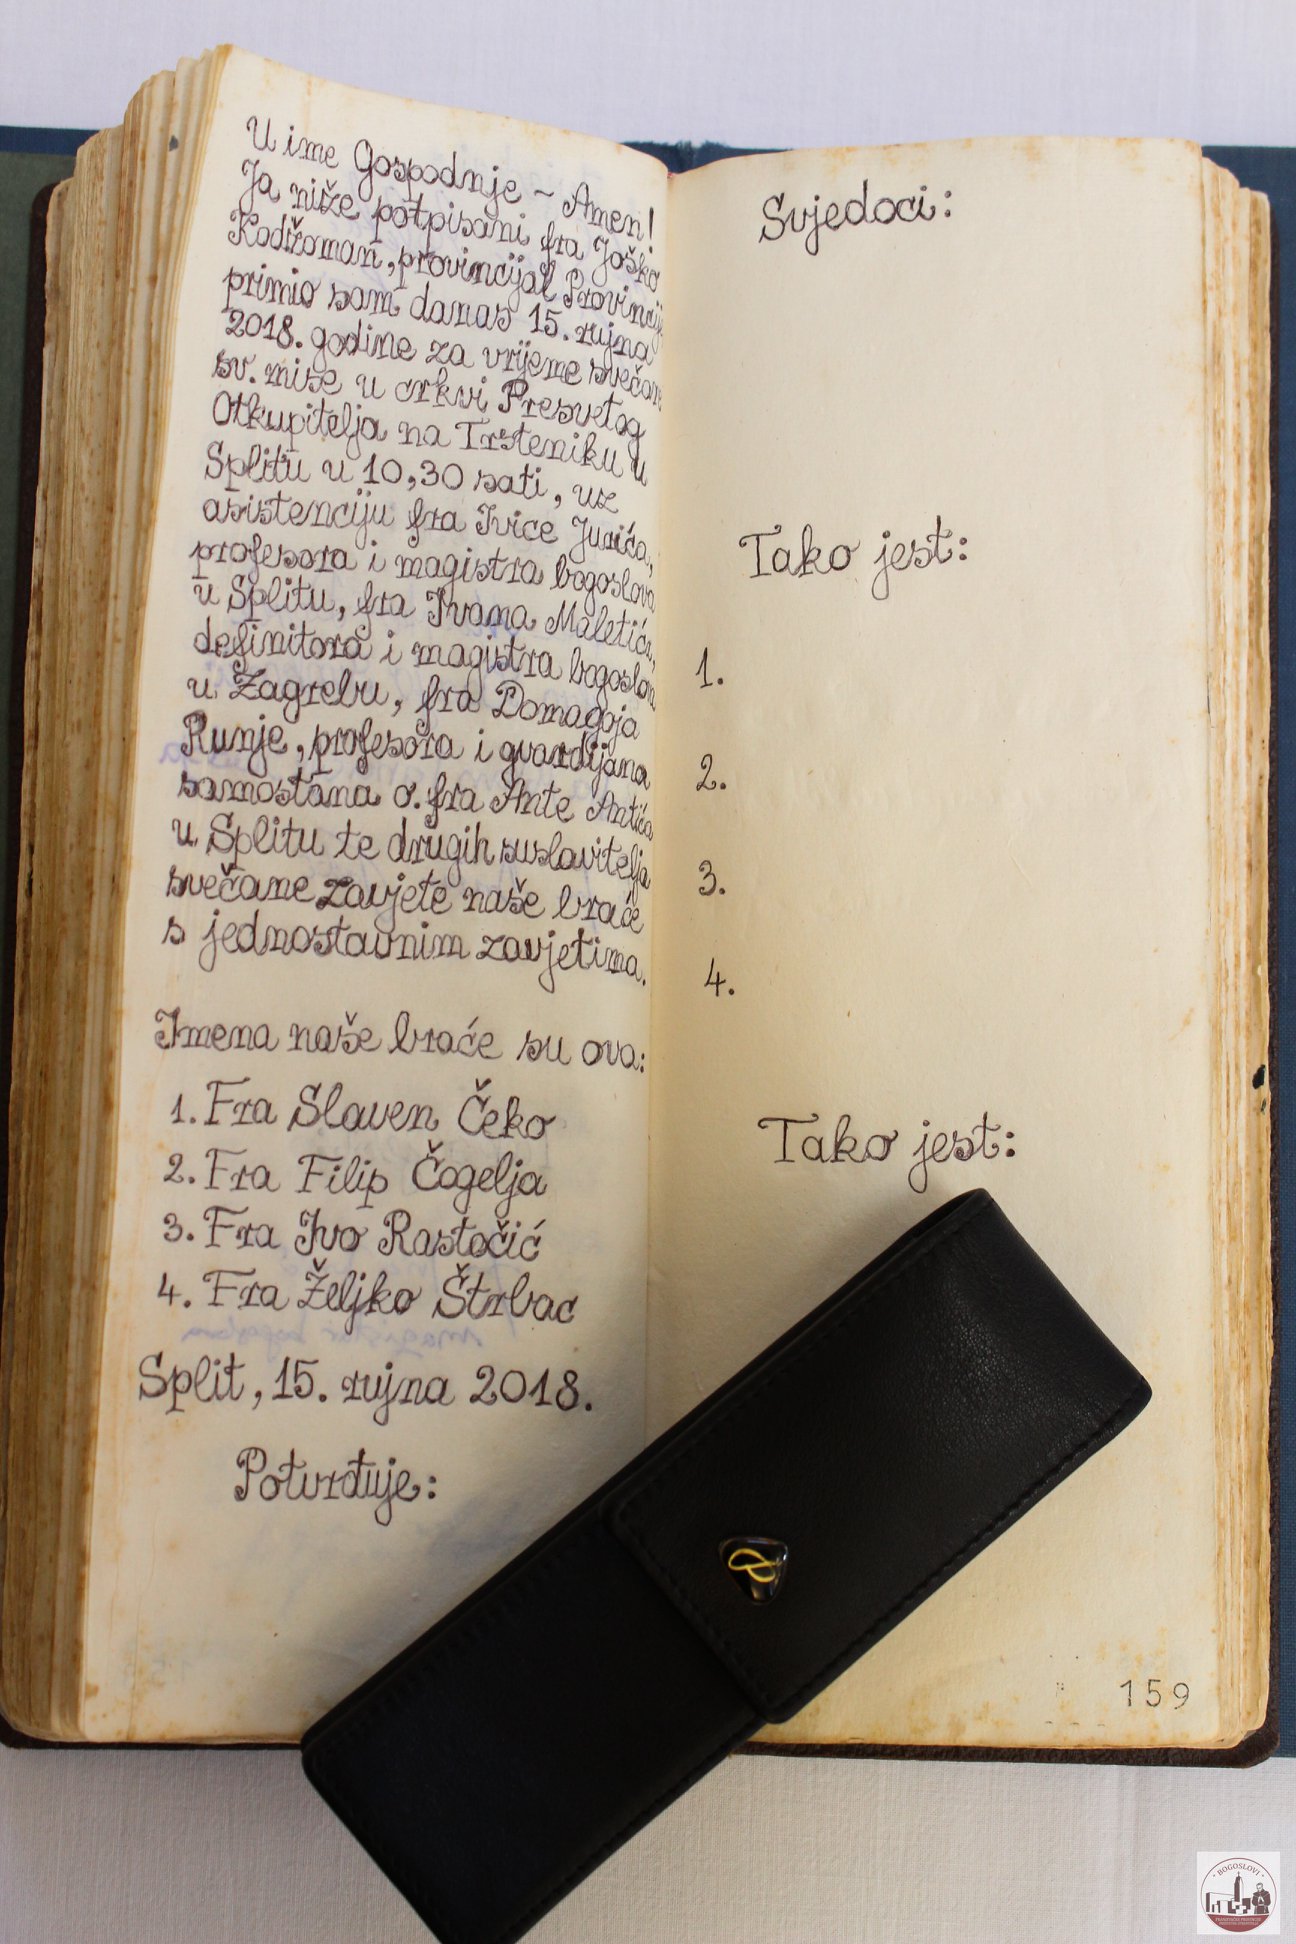 U ime Gospodnje ~ Amen!
Ja niže potpisani fra Joško
Kodžoman, provincijal Provincije
primio sam danas 15. rujna
2018. godine za vrijeme svečane
sv. mise u crkvi Presvetog
Otkupitelja na Trsteniku u
Splitu u 10,30 sati, uz
asistenciju fra Ivice Jurića,
profesora i magistra bogoslova
u Splitu, fra Ivana Maletića,
definitora i magistra bogoslova
u Zagrebu, fra Domagoja
Runje, profesora i gvardijana
samostana o. fra Ante Antića
u Splitu te drugih suslavitelja
svečane zavjete naše braće
s jednostavnim zavjetima.
Imena naše braće su ova:
1. Fra Slaven Čeko
2. Fra Filip Čogelja
3. Fra Ivo Rastočić
4. Fra Željko Štrbac
Split, 15. rujna 2018.
Potvrđuje:
Svjedoci:
Tako jest:
1.
2.
3.
4.
Tako jest:
159
BOGOSLOVI